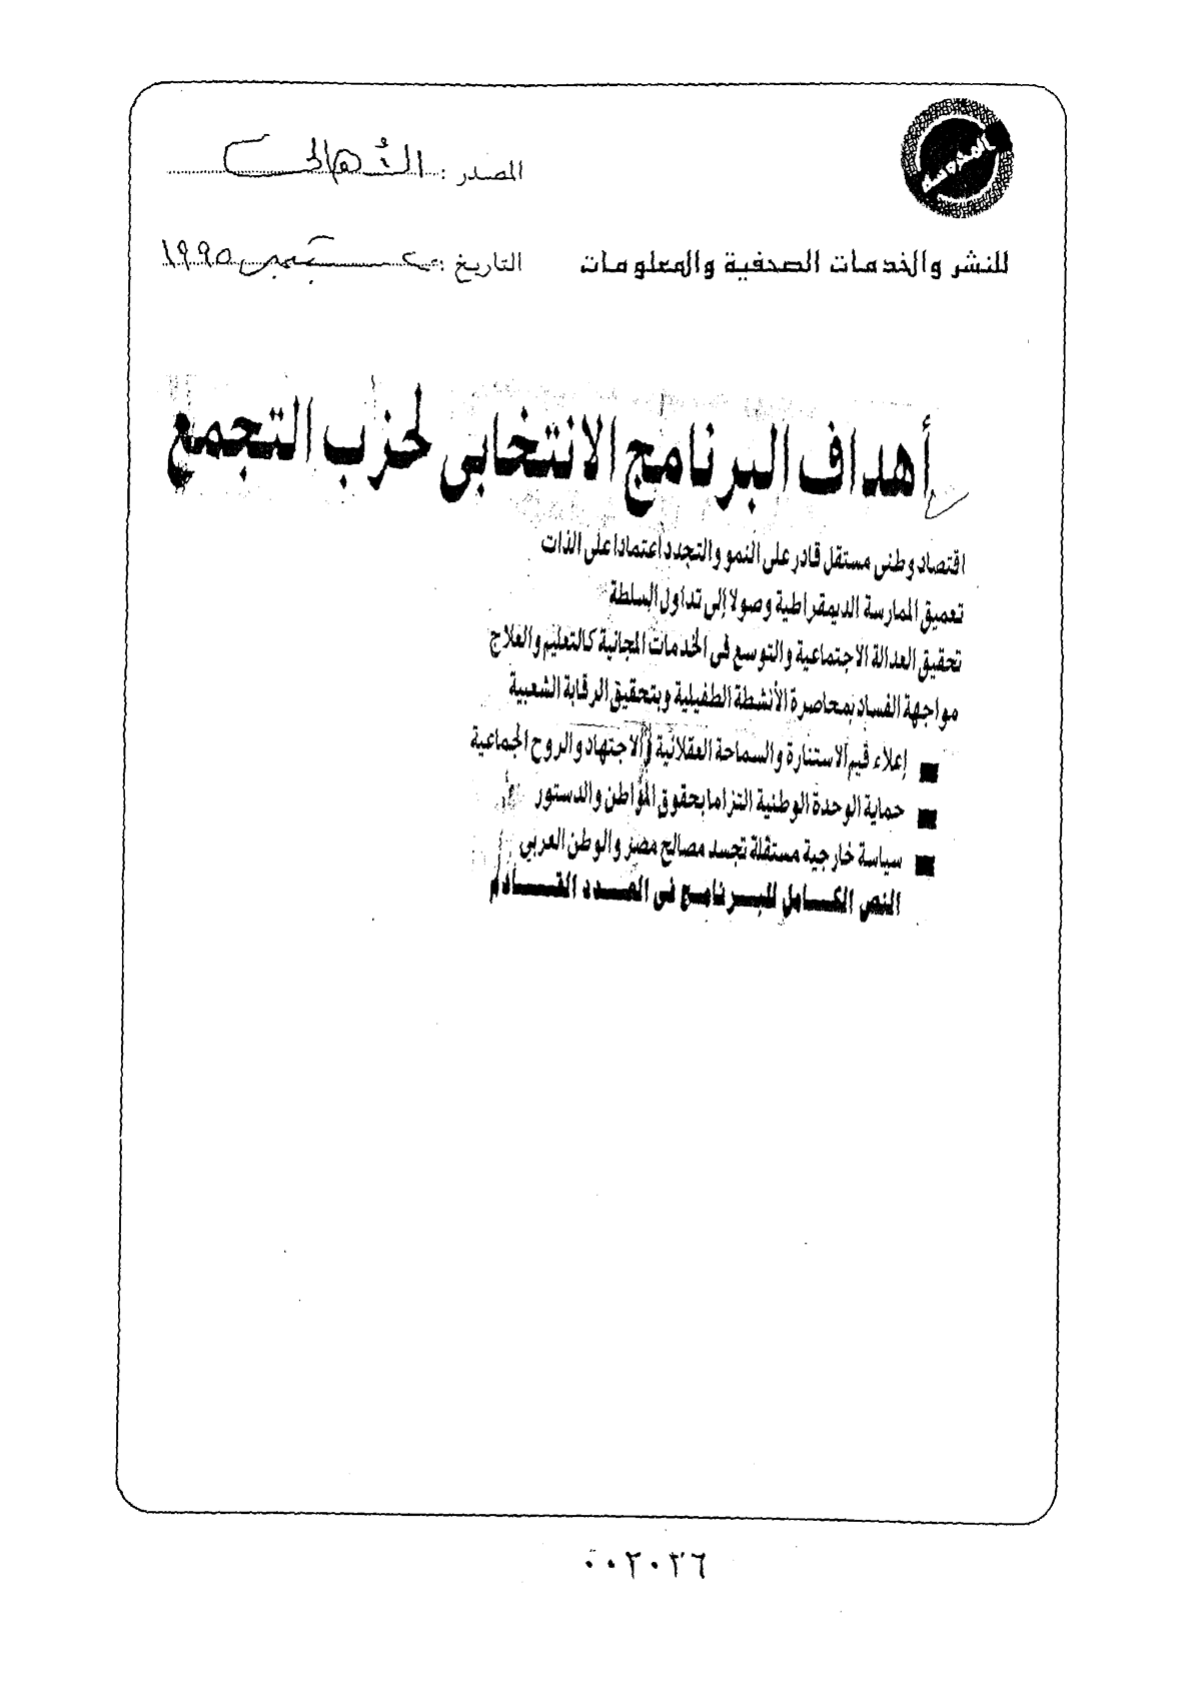 المحروسة
المصدر : الأهالى
للنشر والخدمات الصحفية والمعلومات
التاريخ : سبتمبر ١٩٩٥
أهداف البرنامج الانتخابى لحزب التجمع
اقتصاد وطنى مستقل قادر على النمو والتجدد اعتمادا على الذات
تعميق الممارسة الديمقراطية وصولا إلى تداول السلطة
تحقيق العدالة الاجتماعية والتوسع فى الخدمات المجانية كالتعليم والعلاج
مواجهة الفساد بمحاصرة الأنشطة الطفيلية وبتحقيق الرقابة الشعبية
■ إعلاء قيم الاستنارة والسماحة العقلانية والاجتهاد والروح الجماعية
■ حماية الوحدة الوطنية التزاما بحقوق المواطن والدستور
■ سياسة خارجية مستقلة تجسد مصالح مصر والوطن العربى
النص الكامل للبرنامج فى العدد القادم
٠٠٢٠٢٦